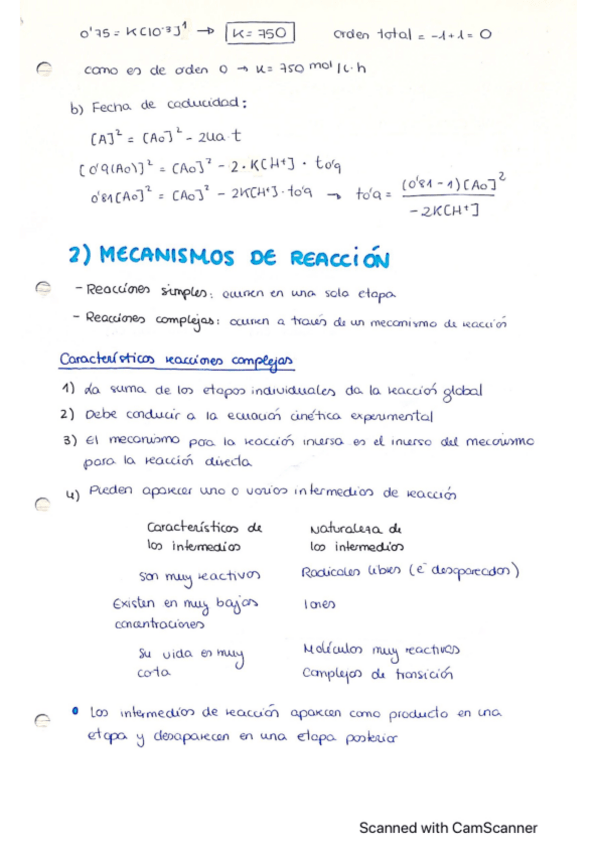 0'75 = K[10⁻³]¹ → K = 750 orden total = -1+1 = 0
como es de orden 0 → K = 750 mol/L·h
b) Fecha de caducidad:
[A]² = [A₀]² - 2Ua t
[0'9(A₀)]² = [A₀]² - 2·K[H⁺]·t₀'₉
0'81[A₀]² = [A₀]² - 2K[H⁺]·t₀'₉ → t₀'₉ = (0'81 - 1)[A₀]² / -2K[H⁺]
2) MECANISMOS DE REACCIÓN
- Reacciones simples: ocurren en una sola etapa
- Reacciones complejas: ocurren a través de un mecanismo de reacción
Características reacciones complejas
1) La suma de los etapas individuales da la reacción global
2) Debe conducir a la ecuación cinética experimental
3) El mecanismo para la reacción inversa es el inverso del mecanismo
para la reacción directa
4) Pueden aparecer uno o varios intermedios de reacción
Características de los intermedios
Naturaleza de los intermedios
Son muy reactivos Radicales libres (e⁻ desapareados)
Existen en muy bajas concentraciones Iones
Su vida es muy corta Moléculas muy reactivas
Complejos de transición
• Los intermedios de reacción aparecen como producto en una
etapa y desaparecen en una etapa posterior
Scanned with CamScanner